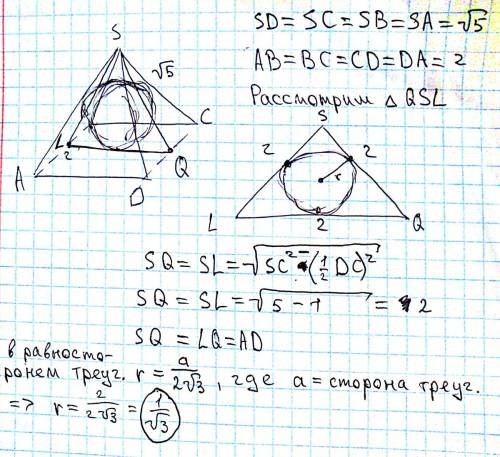 SD = SC = SB = SA = √5
AB = BC = CD = DA = 2
Рассмотрим △ QSL
S
√5
L
2
C
Q
A
D
S
2
2
r
L
2
Q
SQ = SL = √(SC² - (1/2 DC)²)
SQ = SL = √(5 - 1) = 2
SQ = LQ = AD
в равносто-
ронем треуг. r = a/(2√3), где a = сторона треуг.
=> r = 2/(2√3) = 1/√3